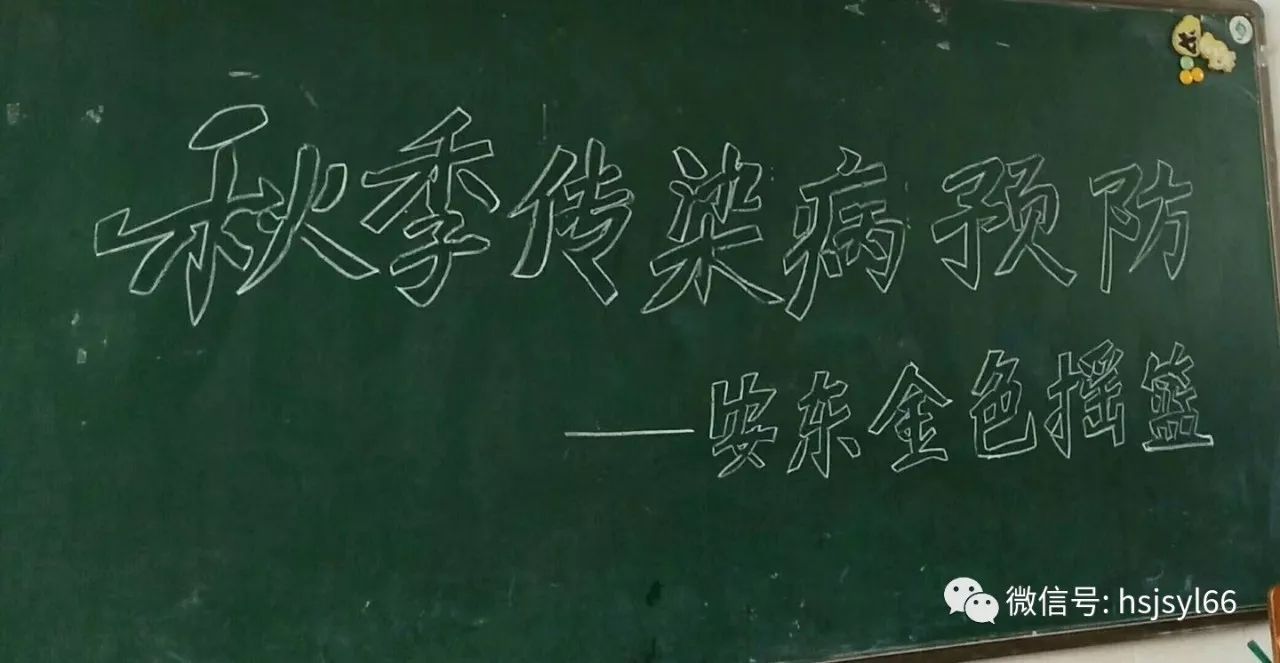 秋季传染病预防
——安东金色摇篮
微信号: hsjsyl66